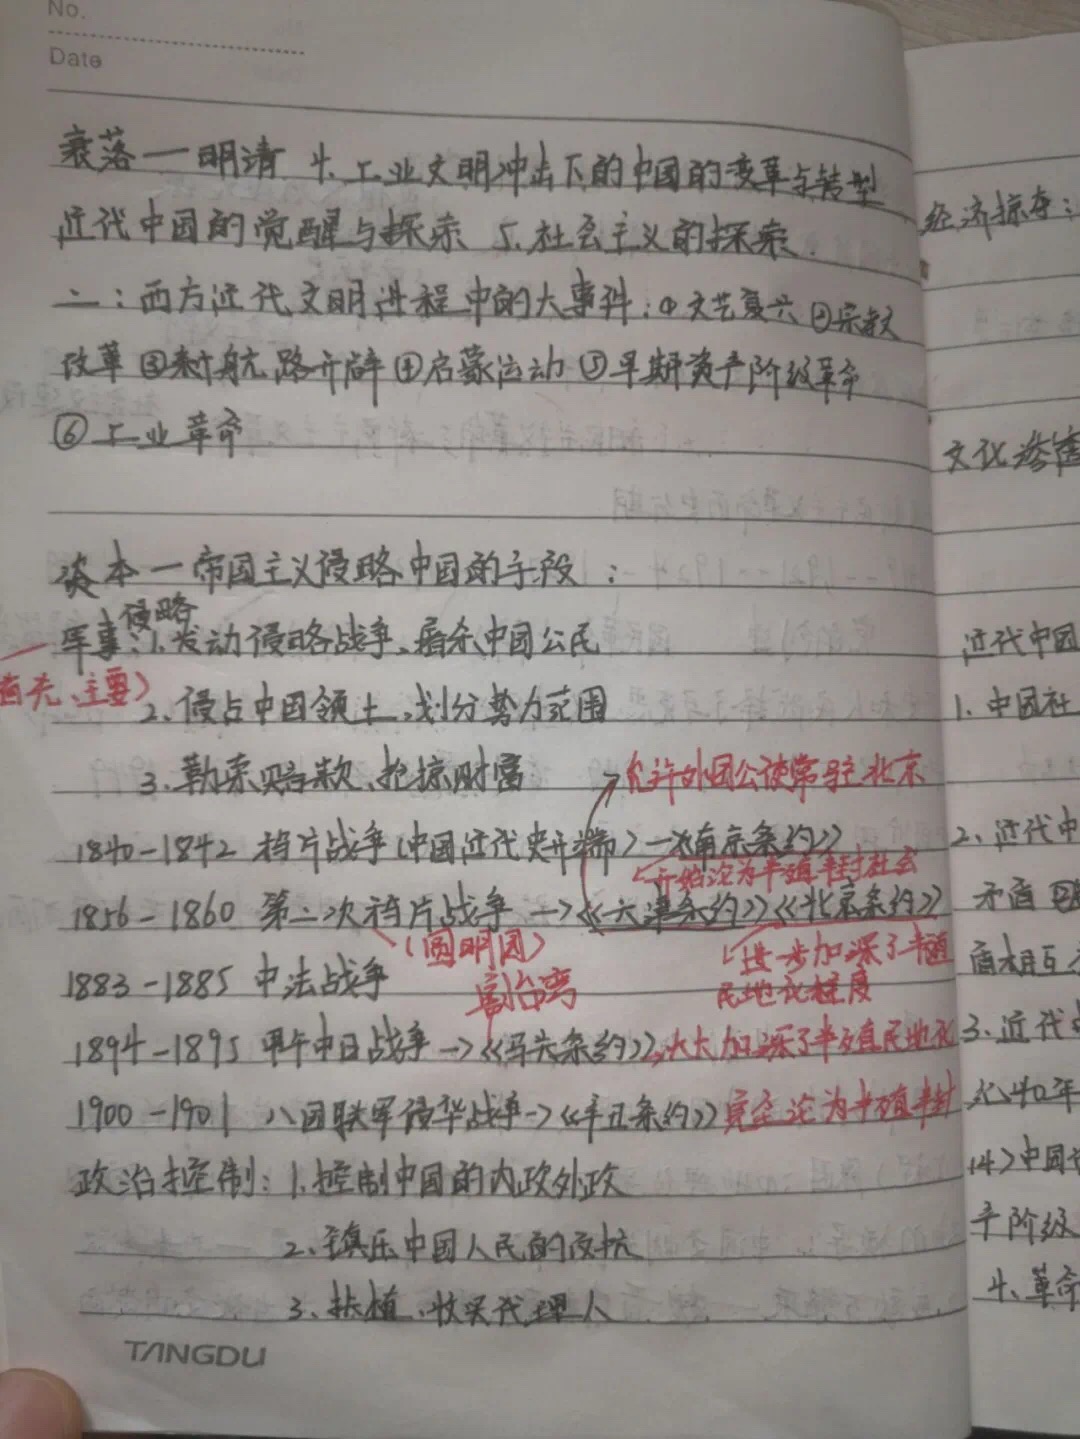 No.
Date
衰落一明清 4.工业文明冲击下的中国的变革与转型
近代中国的觉醒与探索 5.社会主义的探索.
二:西方近代文明进程中的大事件:①文艺复兴②宗教
改革③新航路开辟④启蒙运动⑤早期资产阶级革命
⑥工业革命
资本一帝国主义侵略中国的手段:
侵略
军事:1.发动侵略战争、屠杀中国公民
首先、主要)
2.侵占中国领土,划分势力范围
3.勒索赔款、抢掠财富
允许外国公使常驻北京
1840-1842 鸦片战争(中国近代史开端)→《南京条约》
开始沦为半殖半封社会
1856-1860 第二次鸦片战争 →《天津条约》《北京条约》
(圆明园)
进一步加深了半殖
民地化程度
1883-1885 中法战争
割台湾
1894-1895 甲午中日战争→《马关条约》,大大加深了半殖民地化
1900-1901 八国联军侵华战争→《辛丑条约》完全沦为半殖半封
政治控制:1.控制中国的内政外政
2.镇压中国人民的反抗
3.扶植、收买代理人
TANGDU
经济掠夺:
文化渗透
近代中国
1.中国社
2.近代中
矛盾
3.近代
(4)中国
产阶级
4.革命